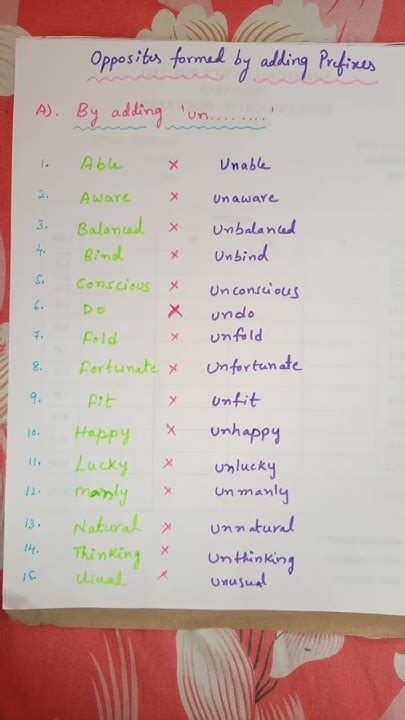 Opposites formed by adding Prefixes
A). By adding 'un.........'
1. Able × Unable
2. Aware × unaware
3. Balanced × Unbalanced
4. Bind × Unbind
5. Conscious × Unconscious
6. Do × undo
7. Fold × unfold
8. Fortunate × Unfortunate
9. Fit × Unfit
10. Happy × unhappy
11. Lucky × unlucky
12. manly × unmanly
13. Natural × unnatural
14. Thinking × Unthinking
15. Usual × unusual